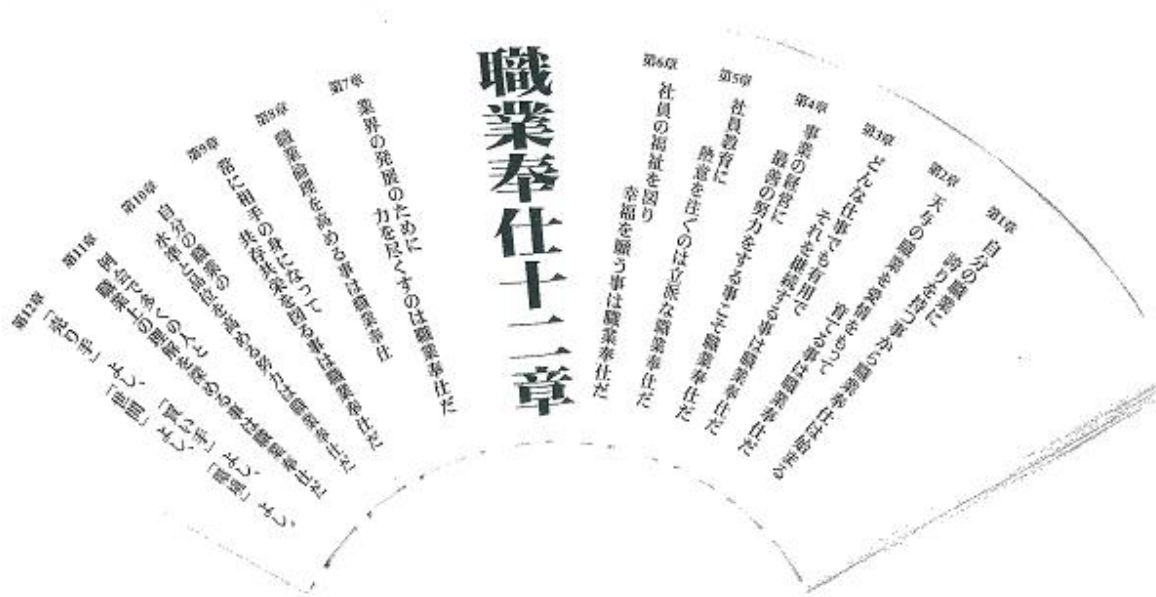 職業奉仕十二章
第1章
自分の職業に
誇りを持つ事から職業奉仕は始まる
第2章
天与の職業を愛情をもって
育てる事は職業奉仕だ
第3章
どんな仕事でも有用で
それを継続する事は職業奉仕だ
第4章
事業の経営に
最善の努力をする事こそ職業奉仕だ
第5章
社員教育に
熱意を注ぐのは立派な職業奉仕だ
第6章
社員の福祉を図り
幸福を願う事は職業奉仕だ
第7章
業界の発展のために
力を尽くすのは職業奉仕だ
第8章
職業倫理を高める事は職業奉仕
第9章
常に相手の身になって
共存共栄を図る事は職業奉仕だ
第10章
自分の職業の
水準と品位を高める努力は職業奉仕だ
第11章
例会で多くの人と
職業上の理解を深める事は職業奉仕だ
第12章
「売り手」よし、「買い手」よし、
「世間」よし、「環境」よし、